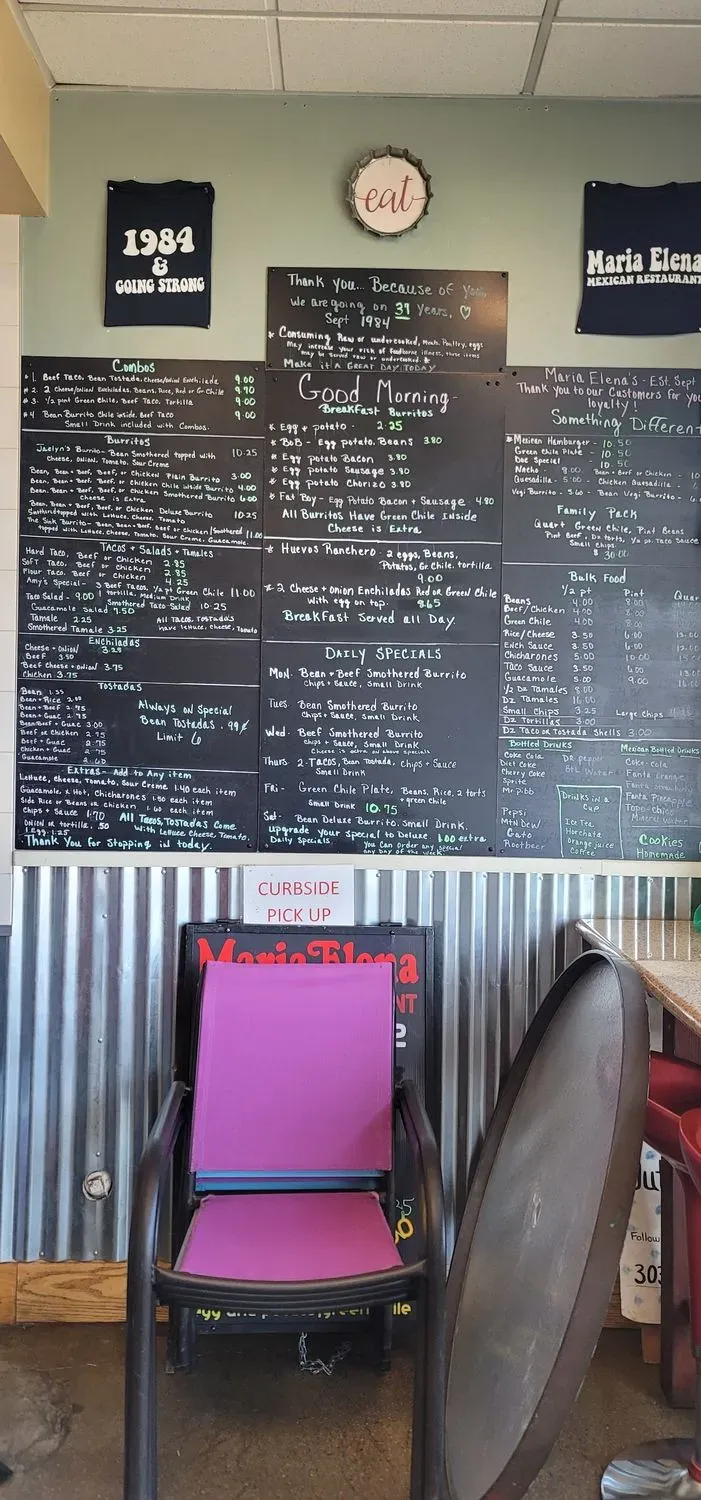 1984
&
GOING STRONG
eat
Maria Elena
MEXICAN RESTAURANT
Thank you... Because of you
we are going on 39 Years, ♡
Sept 1984
* Consuming Raw or undercooked, Meats, Poultry, eggs
may increase your risk of foodborne illness, these items
may be served raw or undercooked. *
Make it A GREAT DAY TODAY
Combos
#1. Beef Taco, Bean Tostada, Cheese/onion Enchilada 9.00
#2. 2 Cheese/onion Enchiladas, Beans, Rice, Red or Gr Chile 9.90
#3. 1/2 pint Green Chile, Beef Taco, Tortilla 9.00
#4 Bean Burrito Chile inside, Beef Taco 9.00
Small Drink included with Combos.
Burritos
Jaelyn's Burrito - Bean Smothered topped with 10.25
Cheese, onion, Tomato, Sour Creme
Bean, Bean + Beef, Beef, or Chicken Plain Burrito 3.00
Bean, Bean + Beef, Beef, or Chicken Chile inside Burrito 4.00
Bean, Bean + Beef, Beef, or Chicken Smothered Burrito 6.00
Cheese is Extra
Bean, Bean + Beef, Beef or Chicken Deluxe Burrito 10.25
Smothered topped with Lettuce, Cheese, Tomato
The Sink Burrito - Bean, Bean + Beef, Beef or Chicken / Smothered 11.00
topped with Lettuce, Cheese, Tomato, Sour Creme, Guacamole
TACOS + Salads + Tamales
Hard Taco, Beef or Chicken 2.85
Soft Taco, Beef or Chicken 2.85
Flour Taco, Beef or Chicken 4.25
Amy's Special - 3 Beef Tacos, 1/2 pt Green Chile 11.00
1 tortilla, Medium Drink
Taco Salad - 9.00 Smothered Taco Salad 10.25
Guacamole Salad 7.50
Tamale 2.25 All Tacos, Tostada's
Smothered Tamale 3.25 have lettuce, cheese, Tomato
Enchiladas
Cheese + onion 3.25
Beef 3.50
Beef Cheese + onion 3.75
Chicken 3.75
Tostadas
Bean 1.55
Bean + Rice
Bean + Beef 2.75
Bean + Guac 2.75
Bean/Beef + Guac 3.00
Beef or Chicken 2.75
Beef + Guac 2.75
Chicken + Guac 2.75
Guacamole 2.60
Always on Special
Bean Tostadas .99¢
Limit 6
Extras - Add to Any item
Lettuce, Cheese, Tomato, Sour Creme 1.40 each item
Guacamole, x Hot, Chicharones 1.50 each item
Side Rice or Beans or chicken 1.60 each item
Chips + Sauce 1.70 All Tacos, Tostadas Come
onion or tortilla .50 With Lettuce, Cheese, Tomato.
1 Egg 1.25
Thank You for Stopping in today.
Good Morning -
Breakfast Burritos
* Egg + potato - 2.25
* BoB - Egg potato, Beans 3.80
* Egg potato Bacon 3.80
* Egg potato Sausage 3.80
* Egg potato Chorizo 3.80
* Fat Boy - Egg Potato Bacon + Sausage 4.80
All Burritos Have Green Chile Inside
Cheese is Extra
* Huevos Ranchero - 2 eggs, Beans,
Potatos, Gr. Chile, tortilla
9.00
* 2 Cheese + Onion Enchiladas Red or Green Chile
with egg on top. 8.65
Breakfast Served all Day
DAILY SPECIALS
Mon. Bean + Beef Smothered Burrito
Chips + Sauce, Small Drink
Tues. Bean Smothered Burrito
Chips + Sauce, Small Drink
Wed. Beef Smothered Burrito
Chips + Sauce, Small Drink
Cheese is extra on above specials
Thurs. 2-TACOS, Bean Tostada, Chips + Sauce
Small Drink
Fri - Green Chile Plate, Beans, Rice, 2 torts
+ green Chile
Small Drink 10.75
Sat- Bean Deluxe Burrito, Small Drink.
upgrade your Special to Deluxe 1.00 extra
Daily Specials. You Can Order any special
any Day of the week.
Maria Elena's - Est. Sept
Thank you to our Customers for you
loyalty!
Something Different
* Mexican Hamburger - 10.50
Green Chile Plate - 10.50
Doe Special - 10.50
Nacho - 8.00 Bean + Beef or Chicken - 10
Quesadilla - 5.00 Chicken Quesadilla -
Vegi Burrito - 5.60 - Bean Vegi Burrito - 6
Family Pack
Quart Green Chile, Pint Beans
Pint Beef, Dz torts, 1/2 pt. Taco Sauce
Small Chips
$ 30.00
Bulk Food
1/2 pt Pint Quar
Beans 4.00 8.00
Beef/Chicken 4.00 8.00
Green Chile 4.00 8.00
Rice/Cheese 3.50 6.00 12.00
Ench Sauce 3.50 6.00
Chicharones 5.00 10.00
Taco Sauce 3.50 6.00
Guacamole 5.00 9.00
1/2 Dz Tamales 8.00
Dz Tamales 16.00
Small Chips 3.25 Large Chips
Dz Tortillas 3.00
Dz Taco or Tostada Shells 3.00
Bottled Drinks
Coke Cola DR pepper
Diet Coke Btl Water
Cherry Coke
Sprite
Mr. pibb
Pepsi
Mtn Dew
Gato
Rootbeer
Drinks in a
Cup
Ice Tea
Horchata
Orange juice
Coffee
Mexican Bottled Drinks
Coke-cola
Fanta Orange
Fanta Strawberry
Fanta Pineapple
Topo Chico
Mineral Water
Cookies
Homemade
CURBSIDE
PICK UP
Maria Elena
NT
Follow
303